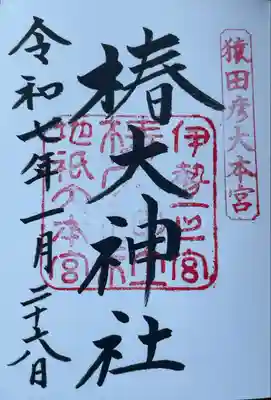 猿田彦大本宮
伊勢一之宮
椿大神社
地祇大本宮
令和七年一月二十六日